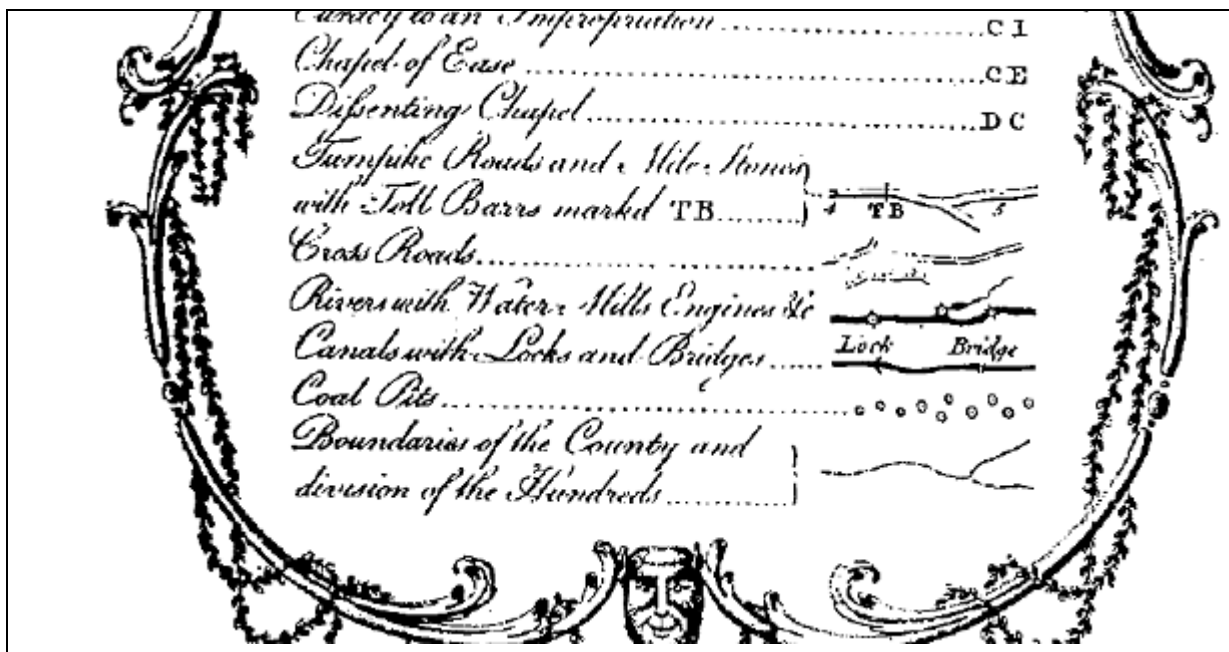 Curacy to an Impropriation ........ CI
Chapel of Ease ........ CE
Dissenting Chapel ........ DC
Turnpike Roads and Mile Stones
with Toll Barrs markd TB ........ 4 TB 5
Cross Roads ........
Rivers with Water Mills Engines &c
Canals with Locks and Bridges ........ Lock Bridge
Coal Pits ........
Boundaries of the County and
division of the Hundreds ........